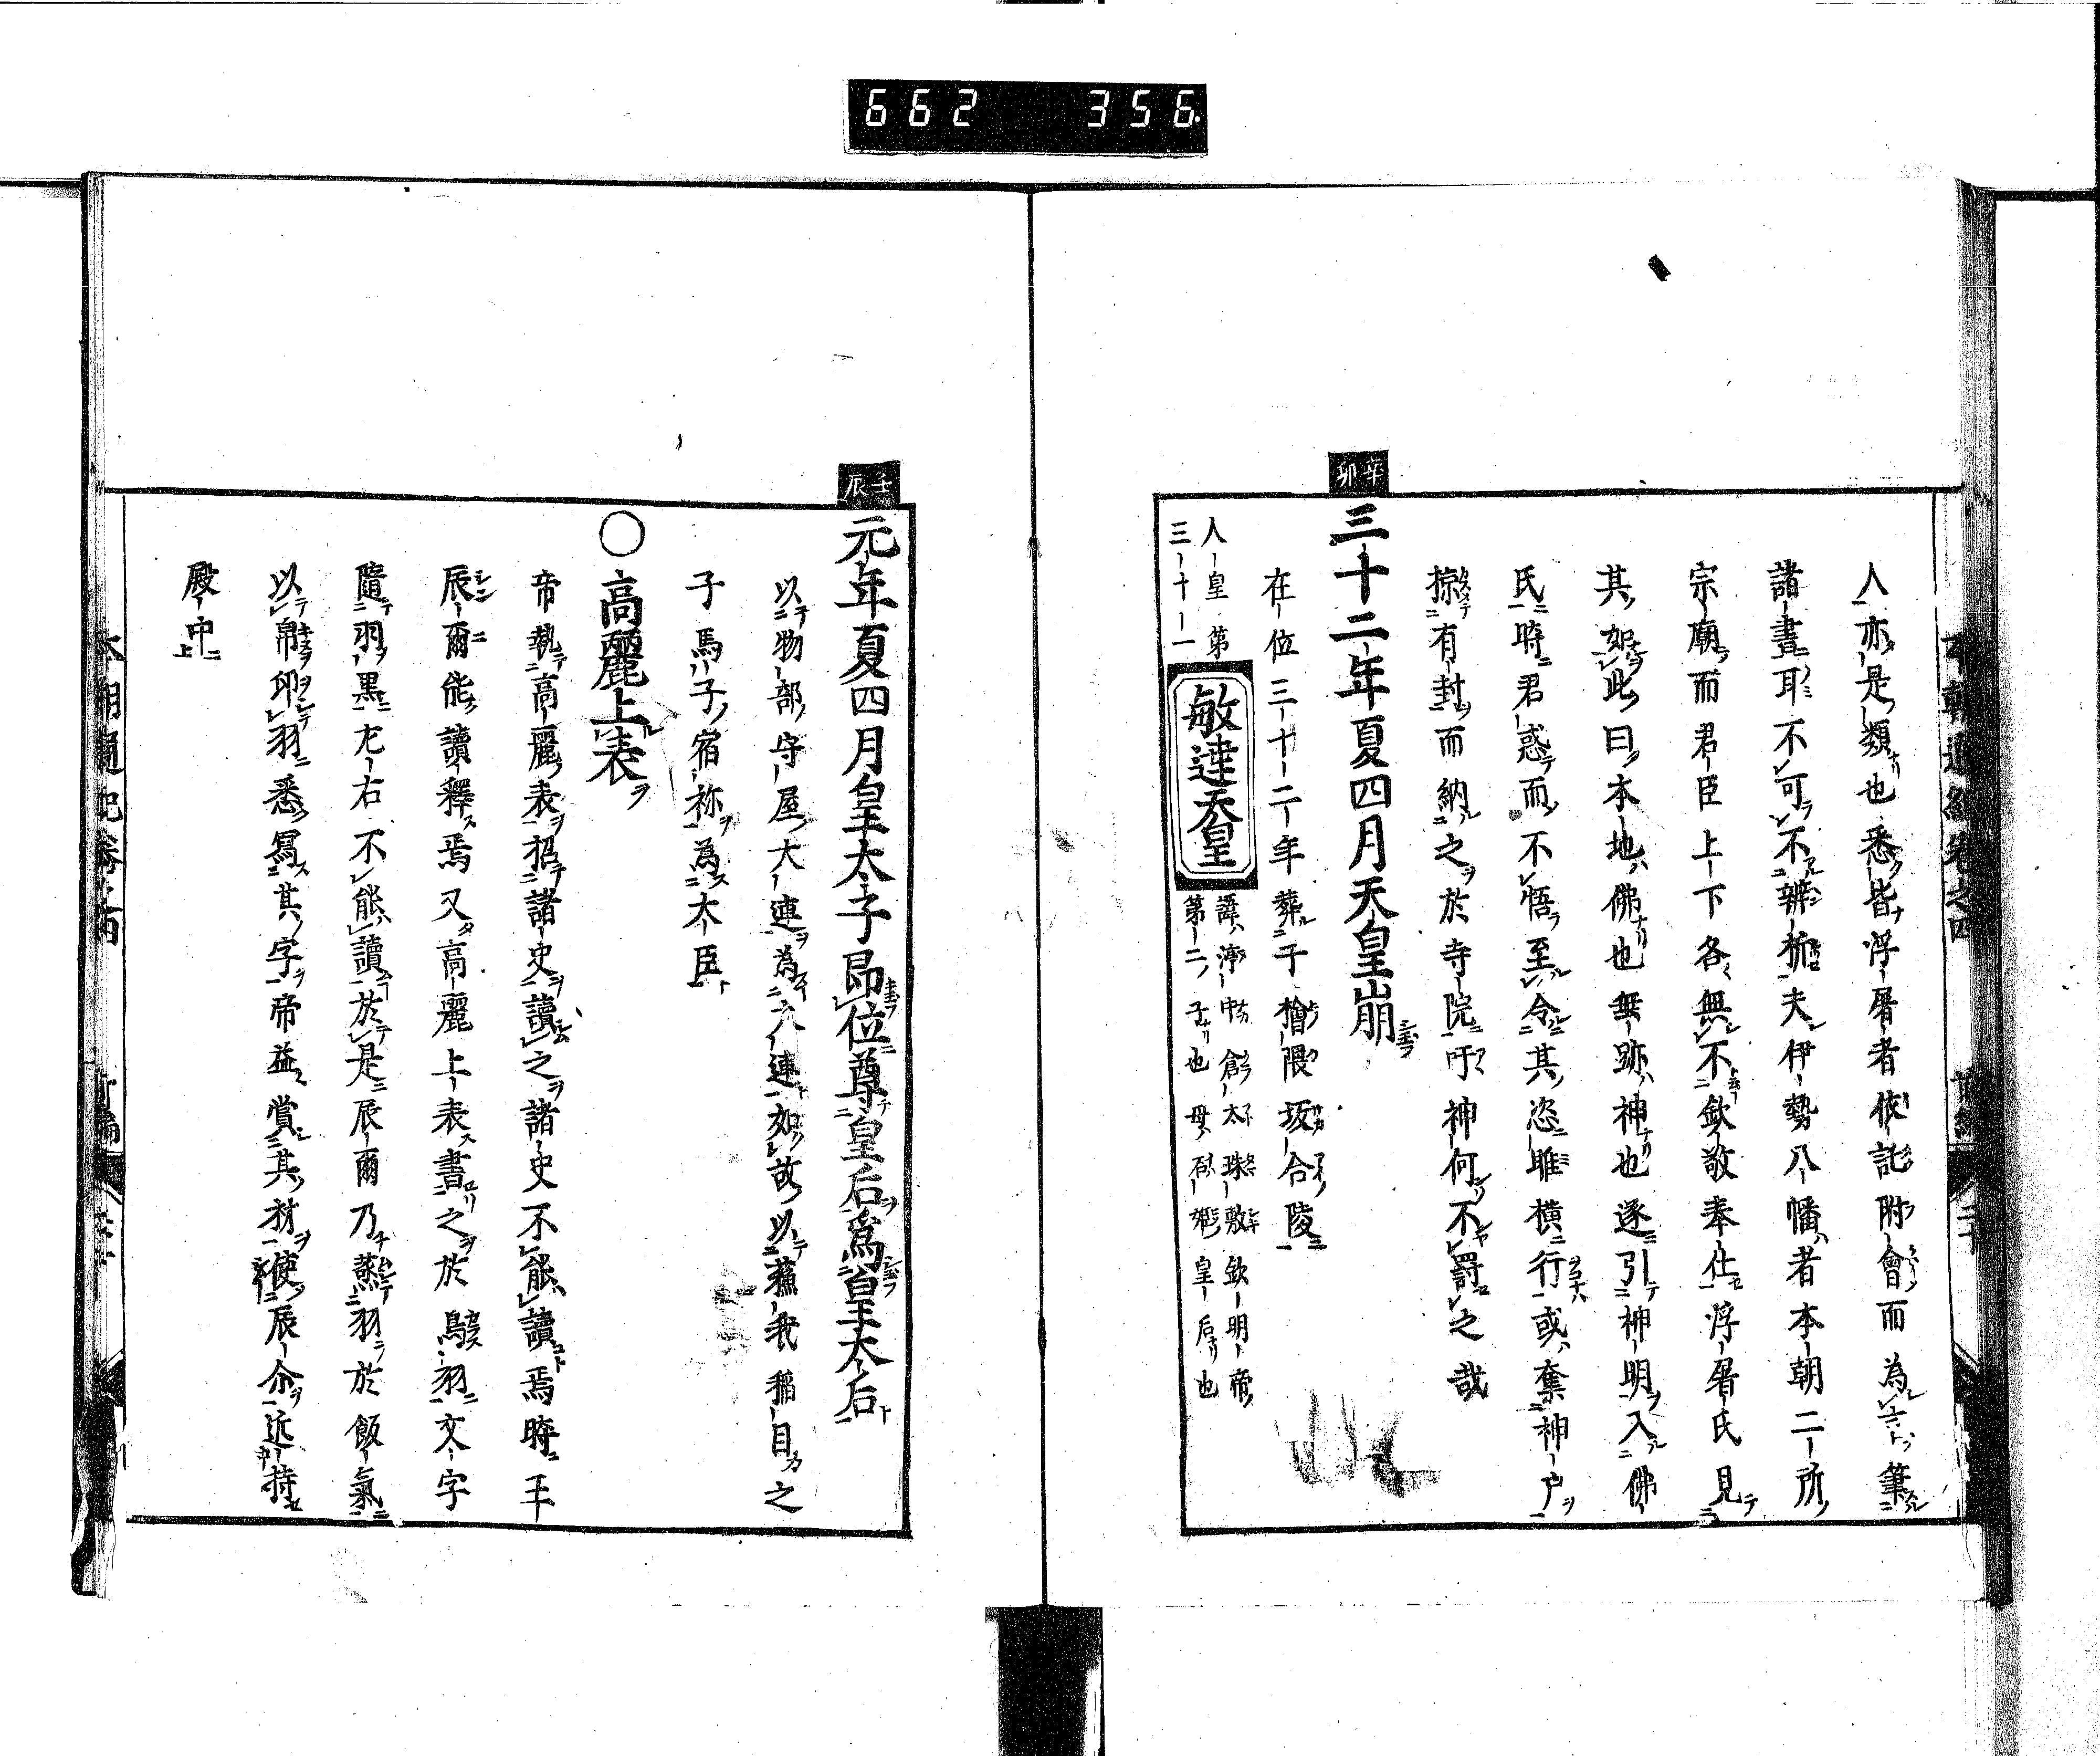 662 356.
人亦是類也悉皆浮屠者依託附會而為言筆
諸書耳不可不辨析夫伊勢八幡者本朝二所
宗廟而君臣上下各無不欽敬奉仕浮屠氏見
其如此曰本地佛也無跡神也遂引神明入佛
氏時君惑而不悟至令其恣睢橫行或奪神戸
掠有封而納之於寺院吁神何不罸之哉
辛卯
三十二年夏四月天皇崩
在位三十二年葬于檜隈坂合陵
人皇第
三十一
敏達天皇
諱渟中倉太珠敷欽明帝
第二子也母石姫皇后也
壬辰
元年夏四月皇太子即位尊皇后爲皇太后
以物部守屋大連為大連如故以蘇我稲目之
子馬子宿祢為大臣
○高麗上表
帝執高麗表招諸史讀之諸史不能讀焉時王
辰爾能讀釋焉又高麗上表書之於烏羽文字
隨羽黒尤右不能讀於是辰爾乃蒸羽於飯氣
以帛印羽悉寫其字帝益賞其材使辰尒近持
殿中